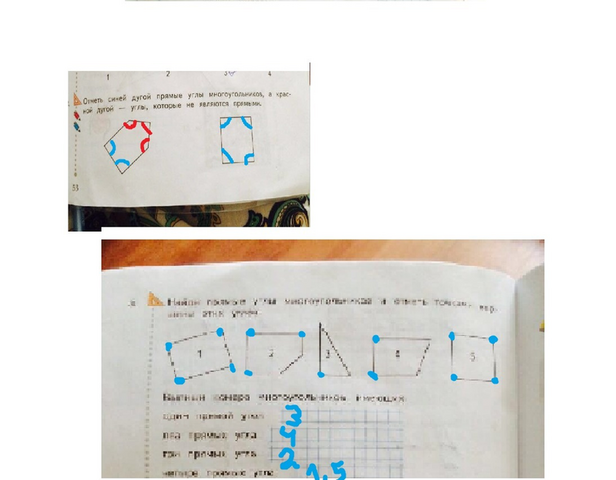 1 2 3 4
Отметь синей дугой прямые углы многоугольников, а крас-
ной дугой — углы, которые не являются прямыми.
53
Найди прямые углы многоугольников и отметь точками вер-
шины этих углов.
1 2 3 4 5
Выпиши номера многоугольников, имеющих:
один прямой угол 3
два прямых угла 4
три прямых угла 2
четыре прямых угла 1,5